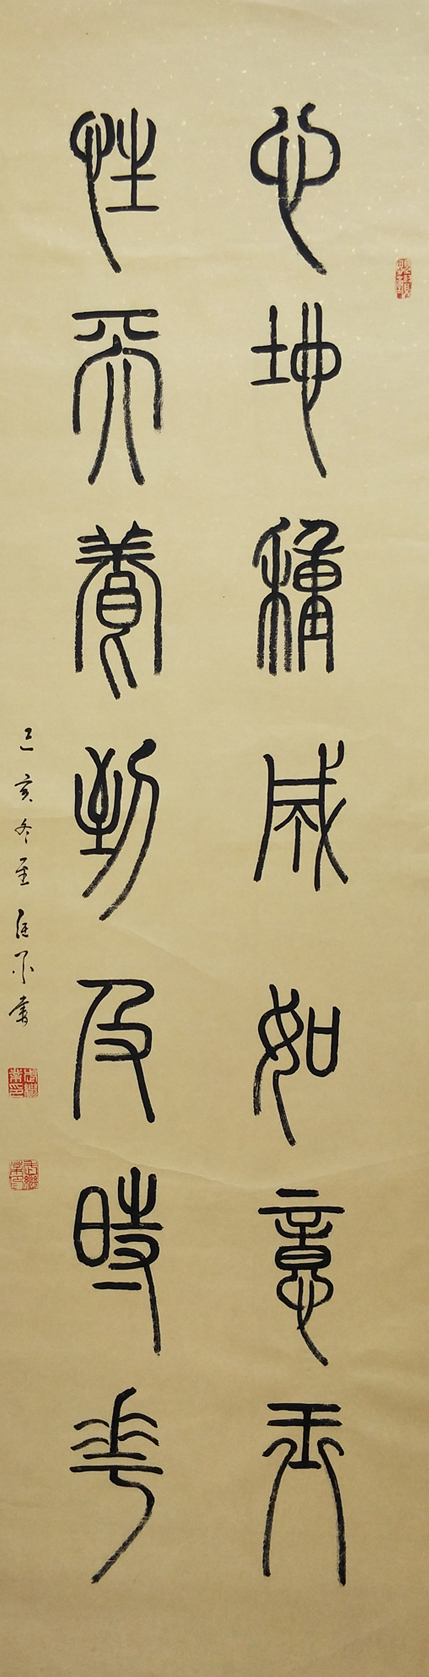 心地種成如意玉
性天養到及時花
己亥冬至
書